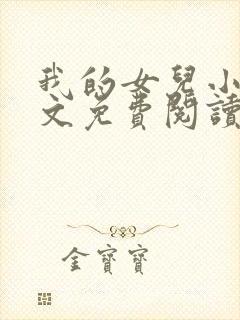 我的女兒小
文免費閱讀
金寶寶